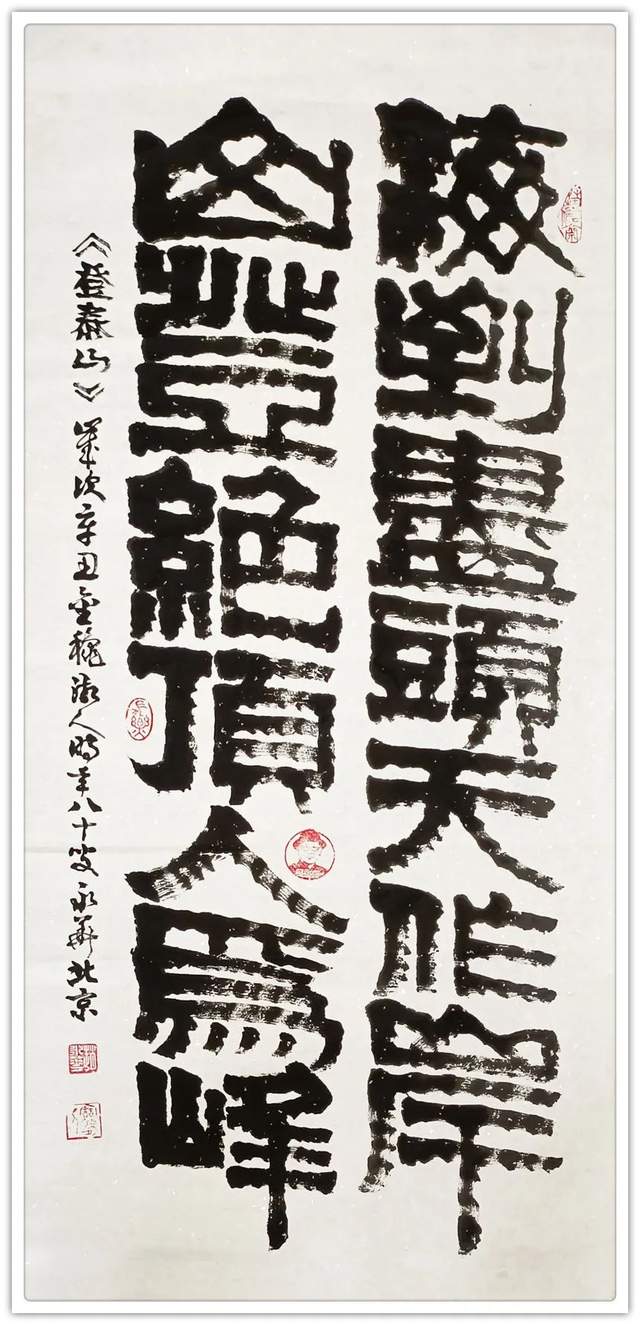 海到盡頭天作岸
山登絕頂人爲峰
《登泰山》歲次辛丑金穐人時年八十叟永華北京